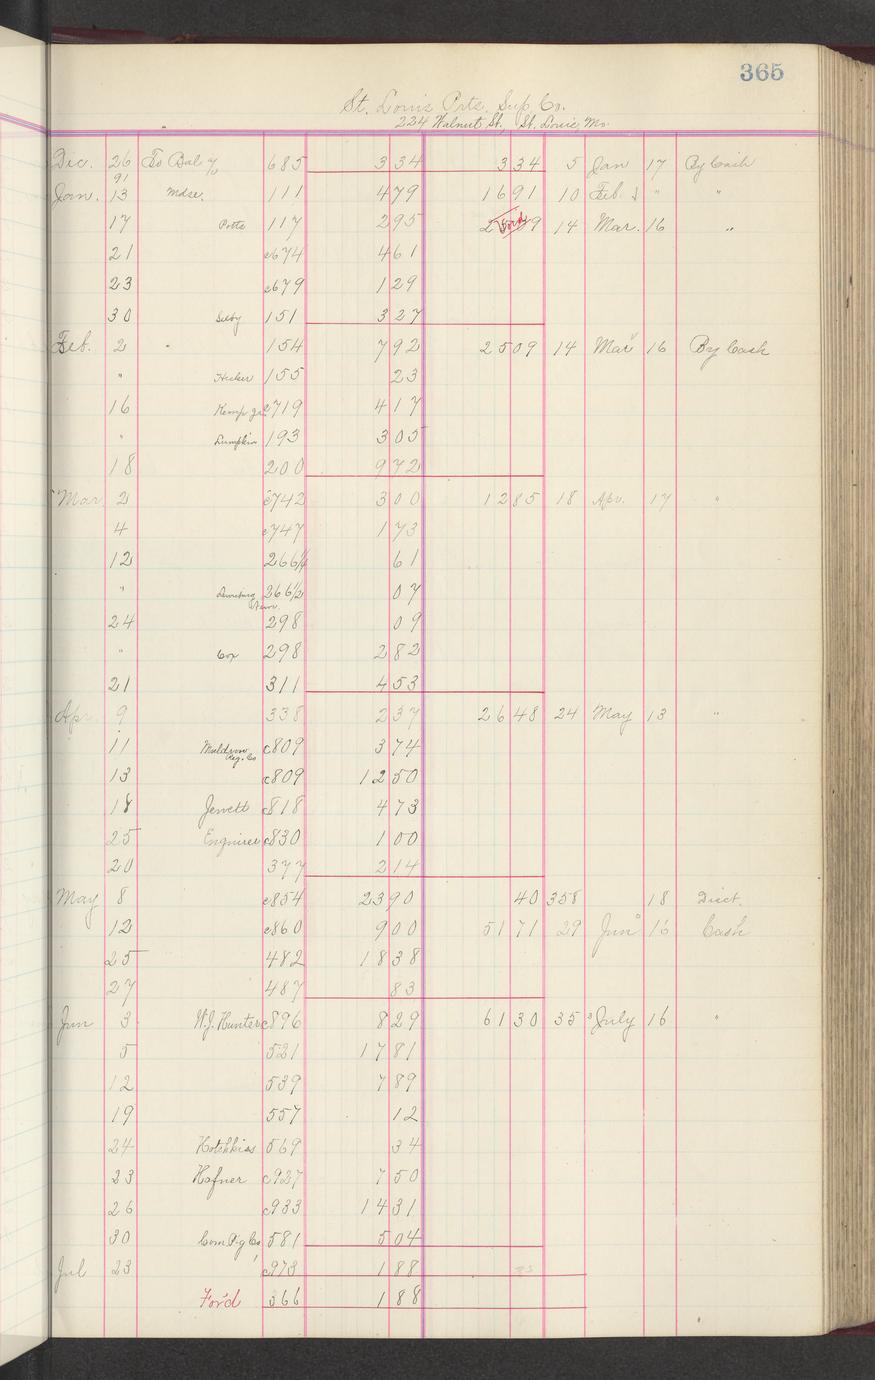 365
St. Louis Prtr. Sup Co.
224 Walnut St., St. Louis, Mo.
Dec. 26 To Bal 685 3 34 3 34 5 Jan 17 By Cash
91
Jan. 13 Mdse. 111 4 79 16 91 10 Feb. " "
17 Potts 117 2 95 Ford 9 14 Mar. 16 "
21 c674 4 61
23 c679 1 29
30 Selby 151 3 27
Feb. 2 " 154 7 92 25 09 14 Mar 16 By Cash
" Hicker 155 23
16 Kemp c719 4 17
" Lumpkin 193 3 05
18 200 9 72
Mar. 2 c742 3 00 12 85 18 Apr. 17 "
4 c747 1 73
12 266½ 61
" 266½ 07
24 298 09
" Cox 298 2 82
21 311 4 53
Apr 9 338 2 37 26 48 24 May 13 "
11 Muldrow Reg. Co c809 3 74
13 c809 12 50
18 Jewett c818 4 73
25 Enquirer c830 1 00
20 377 2 14
May 8 c854 23 90 40 358 18 Disct.
12 c860 9 00 51 71 29 Jun 16 Cash
25 482 18 38
27 487 83
Jun 3 W.J. Hunter c896 8 29 61 30 35 July 16 "
5 521 17 81
12 539 7 89
19 557 12
24 Hotchkiss 569 34
23 Hafner c927 7 50
26 c933 14 31
30 Com. Pig Co 581 5 04
Jul 23 c973 1 88
For'd 366 1 88